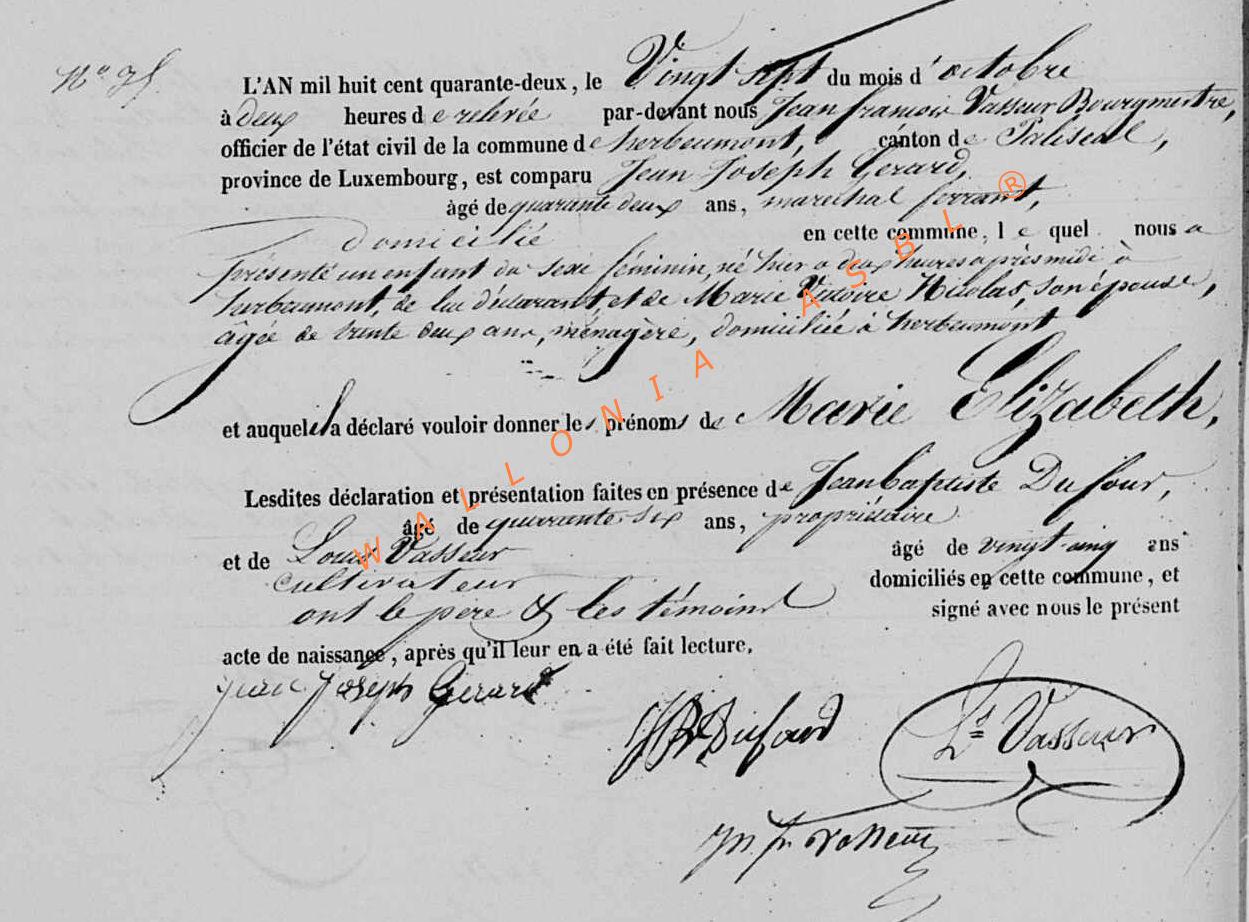 L'AN mil huit cent quarante-deux, le Vingt sept du mois d'octobre
à deux heures de relevée par-devant nous Jean françois Vasseur Bourgmestre,
officier de l'état civil de la commune de herbeumont, canton de Paliseul,
province de Luxembourg, est comparu Jean Joseph Gerard,
âgé de quarante deux ans, marechal ferrant,
domicilié en cette commune, le quel nous a
présenté un enfant du sexe féminin, né hier a deux heures après midi à
herbeumont, de lui déclarant et de Marie Victoire Nicolas, son épouse,
âgée de trente deux ans, ménagère, domiciliée à herbeumont
et auquel il a déclaré vouloir donner les prénoms de Marie Elizabeth,
Lesdites déclaration et présentation faites en présence de Jean baptiste Dufour,
âgé de quarante six ans, propriétaire
et de Louis Vasseur âgé de vingt cinq ans
cultivateur domiciliés en cette commune, et
ont le père & les témoins signé avec nous le présent
acte de naissance, après qu'il leur en a été fait lecture.
Jean Joseph Gerard
JB Dufour
Ls Vasseur
Jn fr Vasseur
WALLONIA ASBL ®